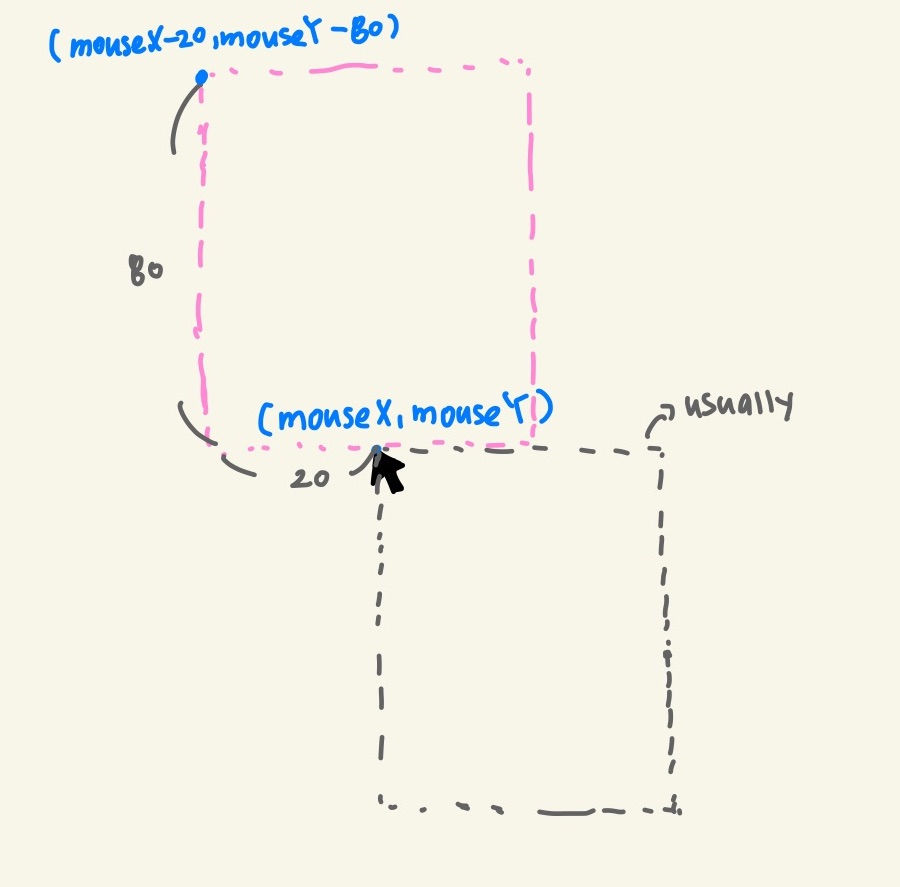 (mouseX-20,mouseY-80)
80
(mouseX,mouseY)
usually
20